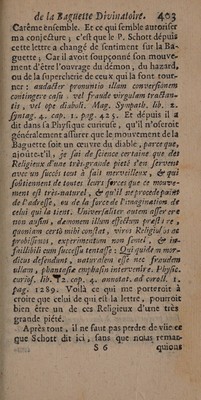 de la Baguette Divinatoire. 403
Carême ensemble. Et ce qui semble autoriser
ma conjecture ; c'est que le P. Schott depuis
cette lettre a changé de sentiment sur la Ba-
guette ; Car il avoit soupçonné son mouve-
ment d'être l'ouvrage du démon, du hazard,
ou de la supercherie de ceux qui la font tour-
ner : audacter pronuntio illam conversionem
contingere casu : vel fraude virgulam tractan-
tis, vel ope diaboli. Mag. Sympath. lib. 2.
syntag. 4. cap. 1. pag. 425. Et depuis il a
dit dans sa Physique curieuse, qu'il n'oseroit
généralement assurer que le mouvement de la
Baguette soit un œuvre du diable, parce que,
ajoute-t'il, je sai de science certaine que des
Religieux d'une très-grande pieté s'en servent
avec un succès tout à fait merveilleux, & qui
soûtiennent de toutes leurs forces que ce mouve-
ment est très-naturel, & qu'il ne procede point de
l'adresse, ou de la force de l'imagination de
celui qui la tient. Universaliter autem asserere
non ausim, dæmonem illum effectum præstare,
quoniam certò mihi constat, viros Religiosos ac
probissimos, experimentum non semel, & in-
faillibili cum successu tentasse : Qui quidem mor-
dicus defendunt, naturalem esse nec fraudem
ullam, phantasiæ emphasin intervenire. Physic.
curios. lib. 12. cap. 4. annotat. ad coroll. 1.
pag. 1289. Voilà ce qui me porteroit à
croire que celui de qui est la lettre, pourroit
bien être un de ces Religieux d'une très
grande piété.
Après tout, il ne faut pas perdre de vûe ce
que Schott dit ici, sans que nous remar-
S 6 quions